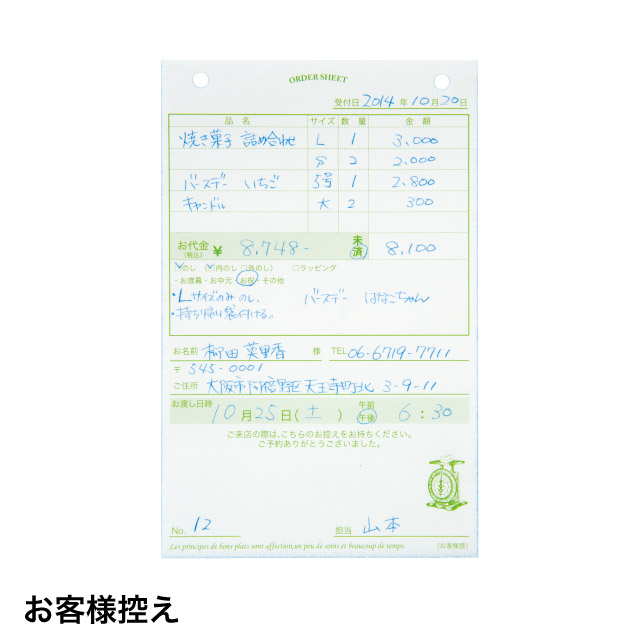 ORDER SHEET
受付日 2014 年 10 月 20 日
品 名 サイズ 数 量 金 額
焼き菓子 詰め合わせ L 1 3,000
〃 2 2,000
バースデー いちご 5号 1 2,800
キャンドル 大 2 300
お代金(税込) ¥ 8,748- 未 済 8,100
☑のし (☑内のし □外のし) □ラッピング
・お歳暮・お中元・お祝・その他
・Lサイズのみ のし、 バースデー はなこちゃん
・持ち帰り袋付ける。
お名前 柳田 英里香 様 TEL 06-6719-7711
〒 545-0001
ご住所 大阪市阿倍野区天王寺町北 3-9-11
お渡し日時 10 月 25 日( 土 ) 午前 午後 6 : 30
ご来店の際は、こちらのお控えをお持ちください。
ご予約ありがとうございました。
No. 12 担当 山本
Les principes de bons plats sont affection, un peu de soins et beaucoup de temps. (お客様控)
お客様控え